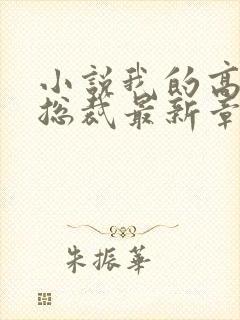 小說我的高
總裁最新章
朱振華